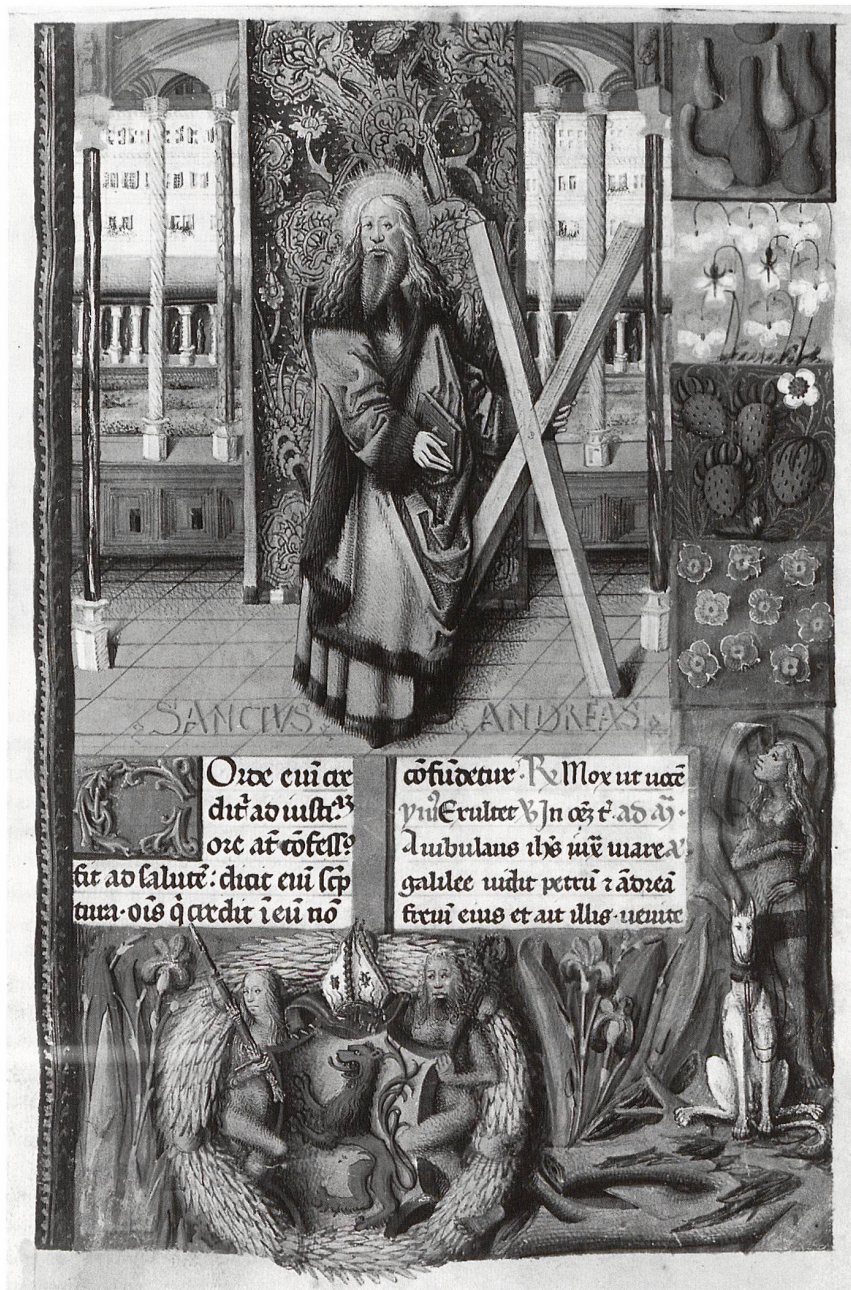 SANCTVS ANDREAS
Orde eni cre
dit̃ ad iusti.
ore at̃ cõfess᷒
fit ad salutẽ: dicit eni sc̃p
tura. oĩs q̃ credit ĩ eũ nõ
cõfũdetur. ℟ Mox ut uocẽ
Exultet ℣ In oẽz t̃. ad
Ambulans ih̃s iux̃ mare
galilee uidit petrũ ⁊ ãdreã
frẽm eius et ait illis. uenite